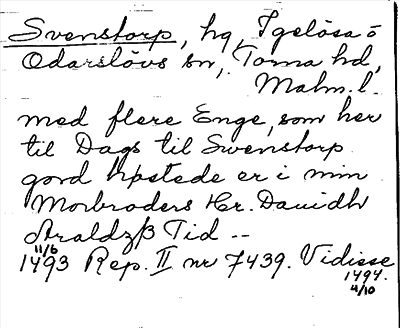 Svenstorp, hg, Igelösa o
Odarslövs sn, Torna hd,
Malm. l.
med flere Enge, som her
til Dags til Swenstorp
gord hpstede er i min
Morbroders Her. Dauidh
Araldzß Tid --
11/6
1493 Rep. II nr 7439. Vidisse
1494.
4/10